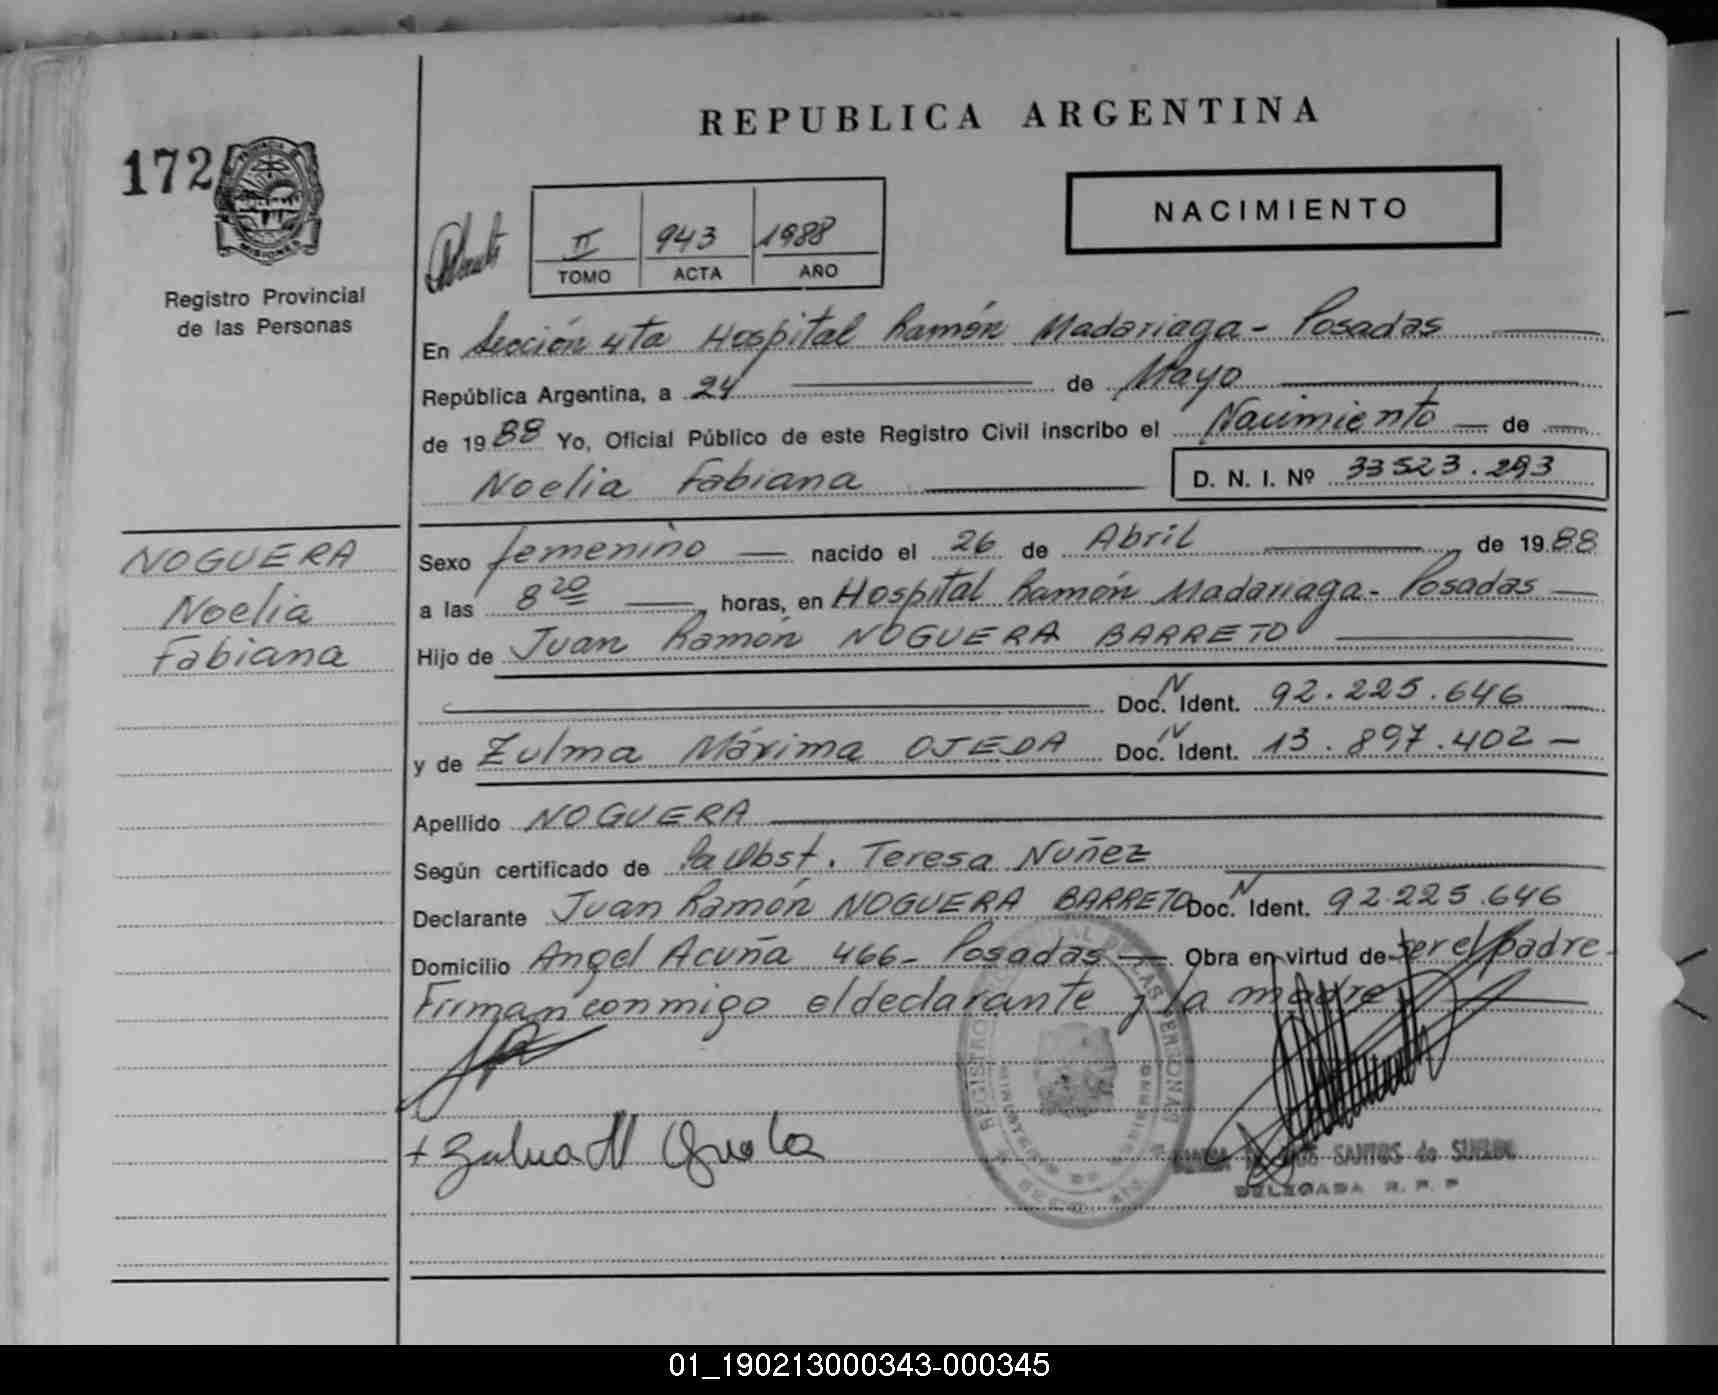 REPUBLICA ARGENTINA
172
MISIONES
Registro Provincial
de las Personas
NACIMIENTO
II 943 1988
TOMO ACTA AÑO
En Sección 4ta Hospital Ramón Madariaga - Posadas
República Argentina, a 24 de Mayo
de 1988 Yo, Oficial Público de este Registro Civil inscribo el Nacimiento de
Noelia Fabiana D. N. I. Nº 33523.293
NOGUERA
Noelia
Fabiana
Sexo femenino nacido el 26 de Abril de 1988
a las 8 20 horas, en Hospital Ramón Madariaga - Posadas
Hijo de Juan Ramón NOGUERA BARRETO
Doc. N Ident. 92.225.646
y de Zulma Máxima OJEDA Doc. N Ident. 13.897.402
Apellido NOGUERA
Según certificado de la Obst. Teresa Nuñez
Declarante Juan Ramón NOGUERA BARRETO Doc. N Ident. 92.225.646
Domicilio Angel Acuña 466 - Posadas Obra en virtud de ser el padre -
Firman conmigo el declarante y la madre
REGISTRO PROVINCIAL DE LAS PERSONAS
SANTOS de SUELDO
DELEGADA R. P. P
01_190213000343-000345